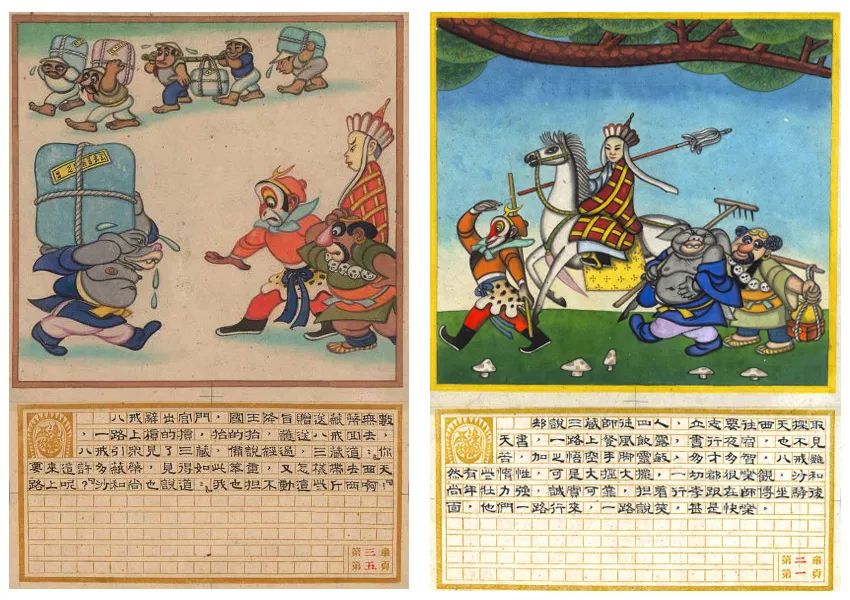 八戒辭出宮門，國王降旨贈送藏幣無數
，一路上摃的摃，抬的抬，護送八戒回去，
八戒引眾見了三藏，備說經過，三藏道：「你
要來這許多藏幣，見得如此笨重，又怎樣帶去西天
路上呢？」沙和尚也說道：「我也担不動這些斤両啊！」
第三章
第五頁
却說三藏師徒四人，立志要往西天探取
天書，一路上餐風飲露，晝行夜宿，也不見
苦，加之悟空手脚靈敏，多才多智，八戒雖
然有些惰性，可是大擺大擺，一切都很樂觀，沙和
尚年壯力強，誠實可靠，担着行李跟在師傅坐騎後
面，他們一路行來，一路說笑，甚是快樂。
第二章
第一頁